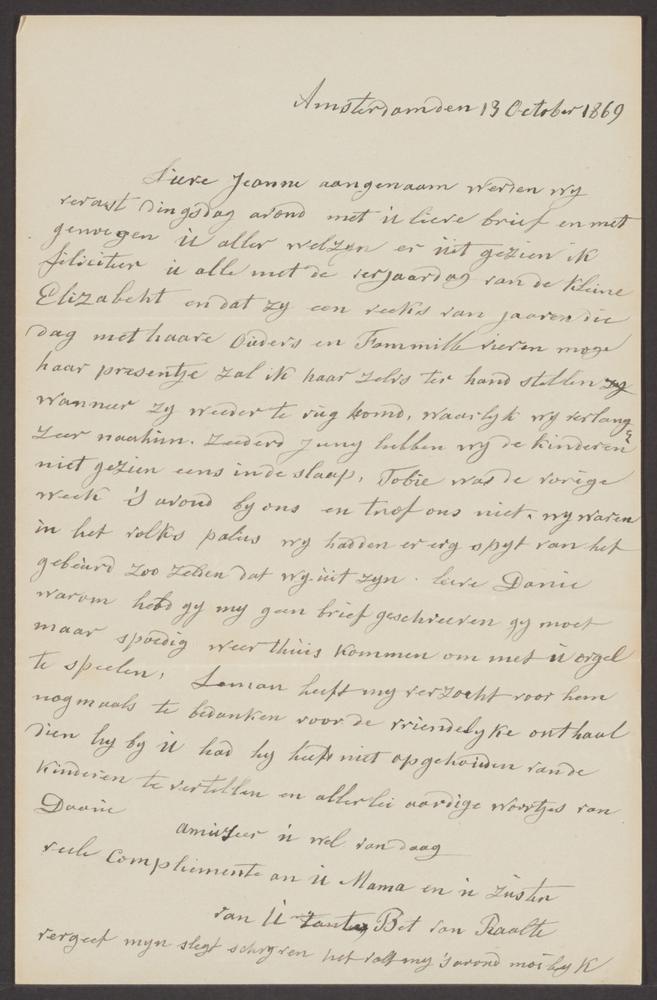 Amsterdam den 13 October 1869
Lieve Jeanne aangenaam werden wy
verast Dingsdag avond met ú lieve brief en met
genoegen ú aller welzyn er úit gezien ik
feliciteer ú alle met de verjaardag van de Kleine
Elizabeht en dat zy een reeks van jaaren die
dag met haare Oúders en Fammille vieren moge
haar presentje zal ik haar zelvs ter hand stellen
wanneer zy weeder te rúg komd, waarlyk wy verlang
zeer naahún. Zeederd Juny hebben wy de kinderen
niet gezien eens in de slaap, Tobie was de vorige
week 's avond by ons en trof ons niet. wy waren
in het volks palús wy hadden er erg spyt van het
gebeúrd zoo zelden dat wy úit zyn. lieve Danie
warom hebd gy my geen brief geschreeven gy moet
maar spoedig weer thúis kommen om met ú orgel
te speelen, Loman heeft my verzocht voor hem
nogmaals te bedanken voor de vriendelyke onthaal
dien hy by ú had hy heeft niet opgehoúden van de
kinderen te vertellen en allerlei aardige woortjes van
Danie amúseer ú wel van daag
veele Complimente an ú Mama en ú Zúster
van Ú Tante Bet van Raalte
vergeef myn slegt schryven het valt my 's avond moeilyk